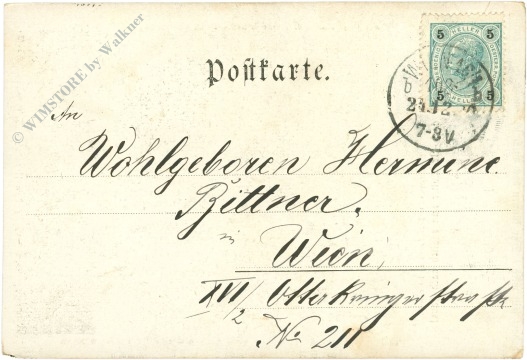 © WIMSTORE by Walkner
Postkarte.
5 HELLER 5
5 5
24.12.
7-8V
An
Wohlgeboren Hermine
Bittner,
in
Wien,
XVI/2 Ottakringerstrasse
No 211